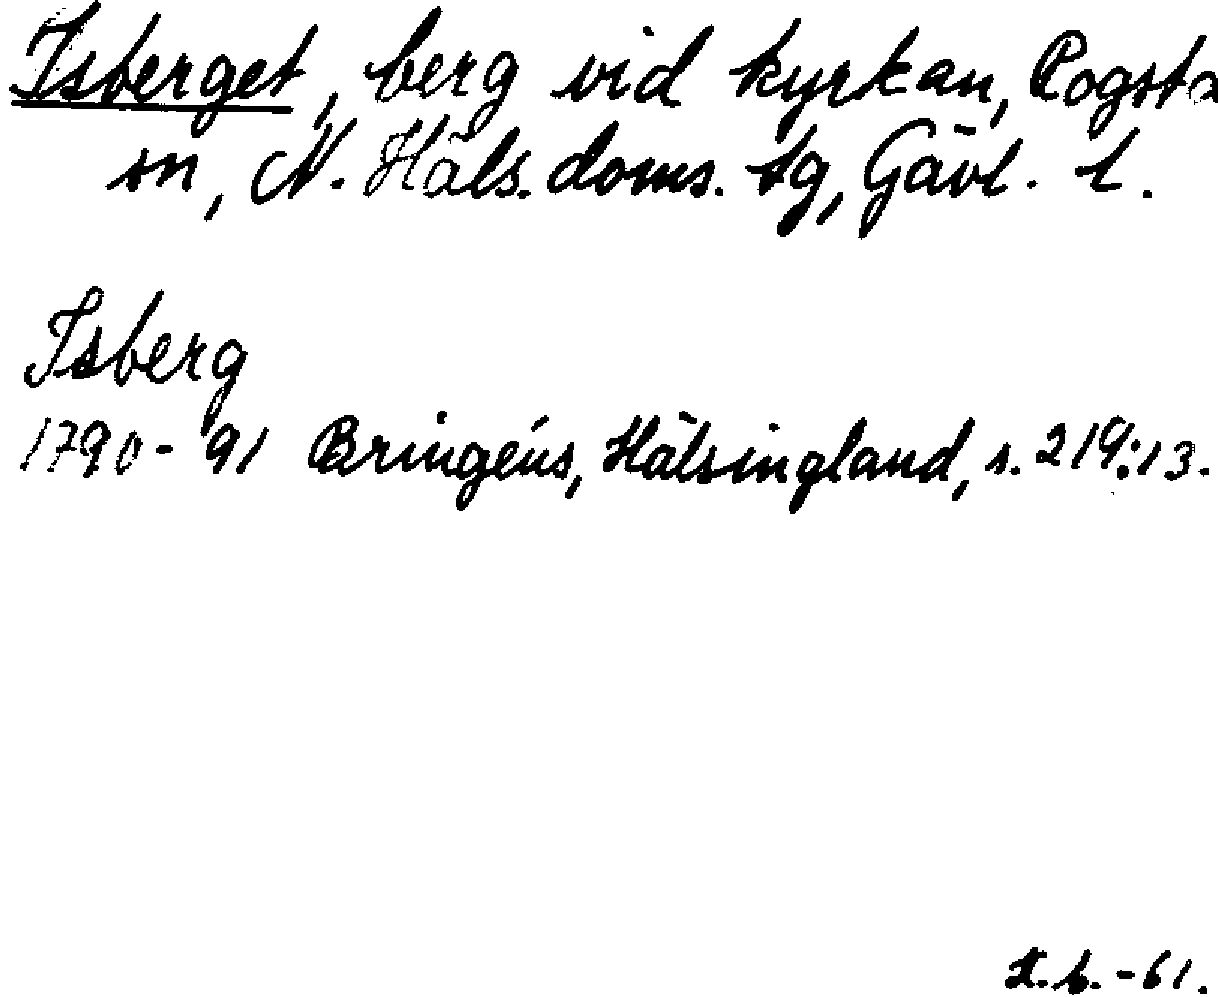 Isberget, berg vid kyrkan, Rogsta
sn, N. Häls. doms. tg, Gävl. l.
Isberg
1790-91 Bringéus, Hälsingland, s. 219:13.
-61.